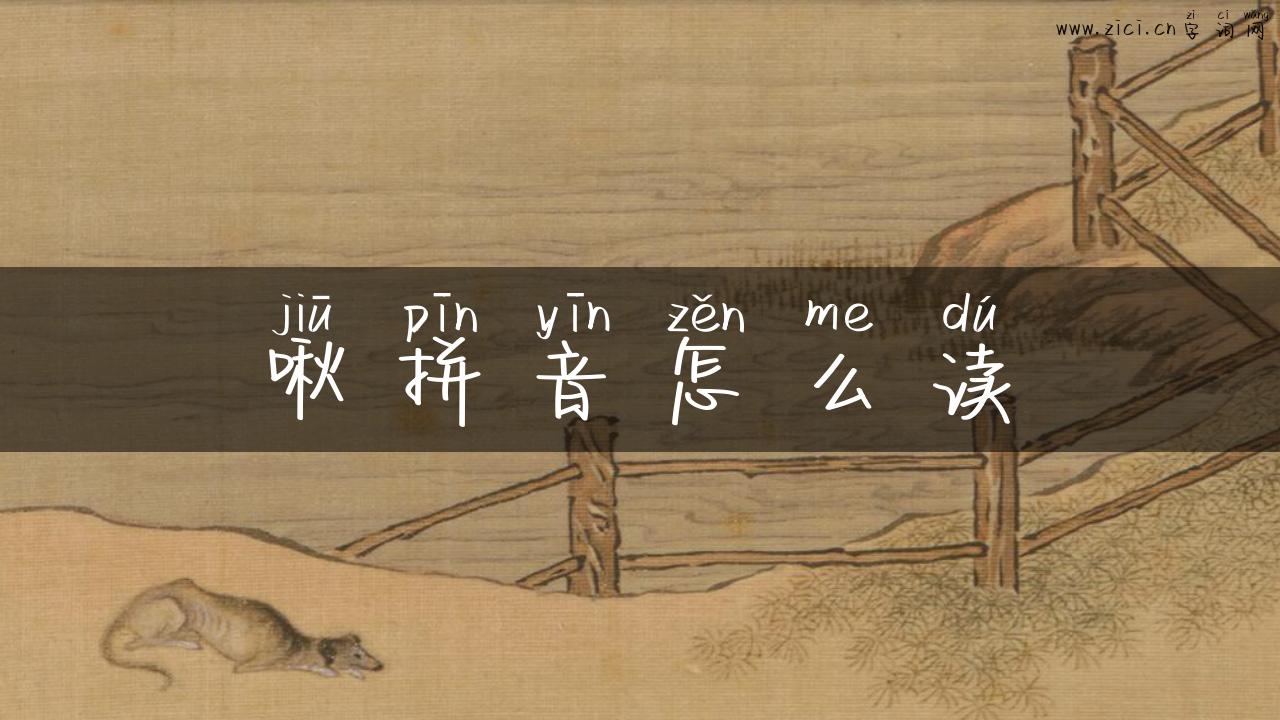 zì cí wǎng
www.zici.cn 字词网
jiū pīn yīn zěn me dú
啾拼音怎么读